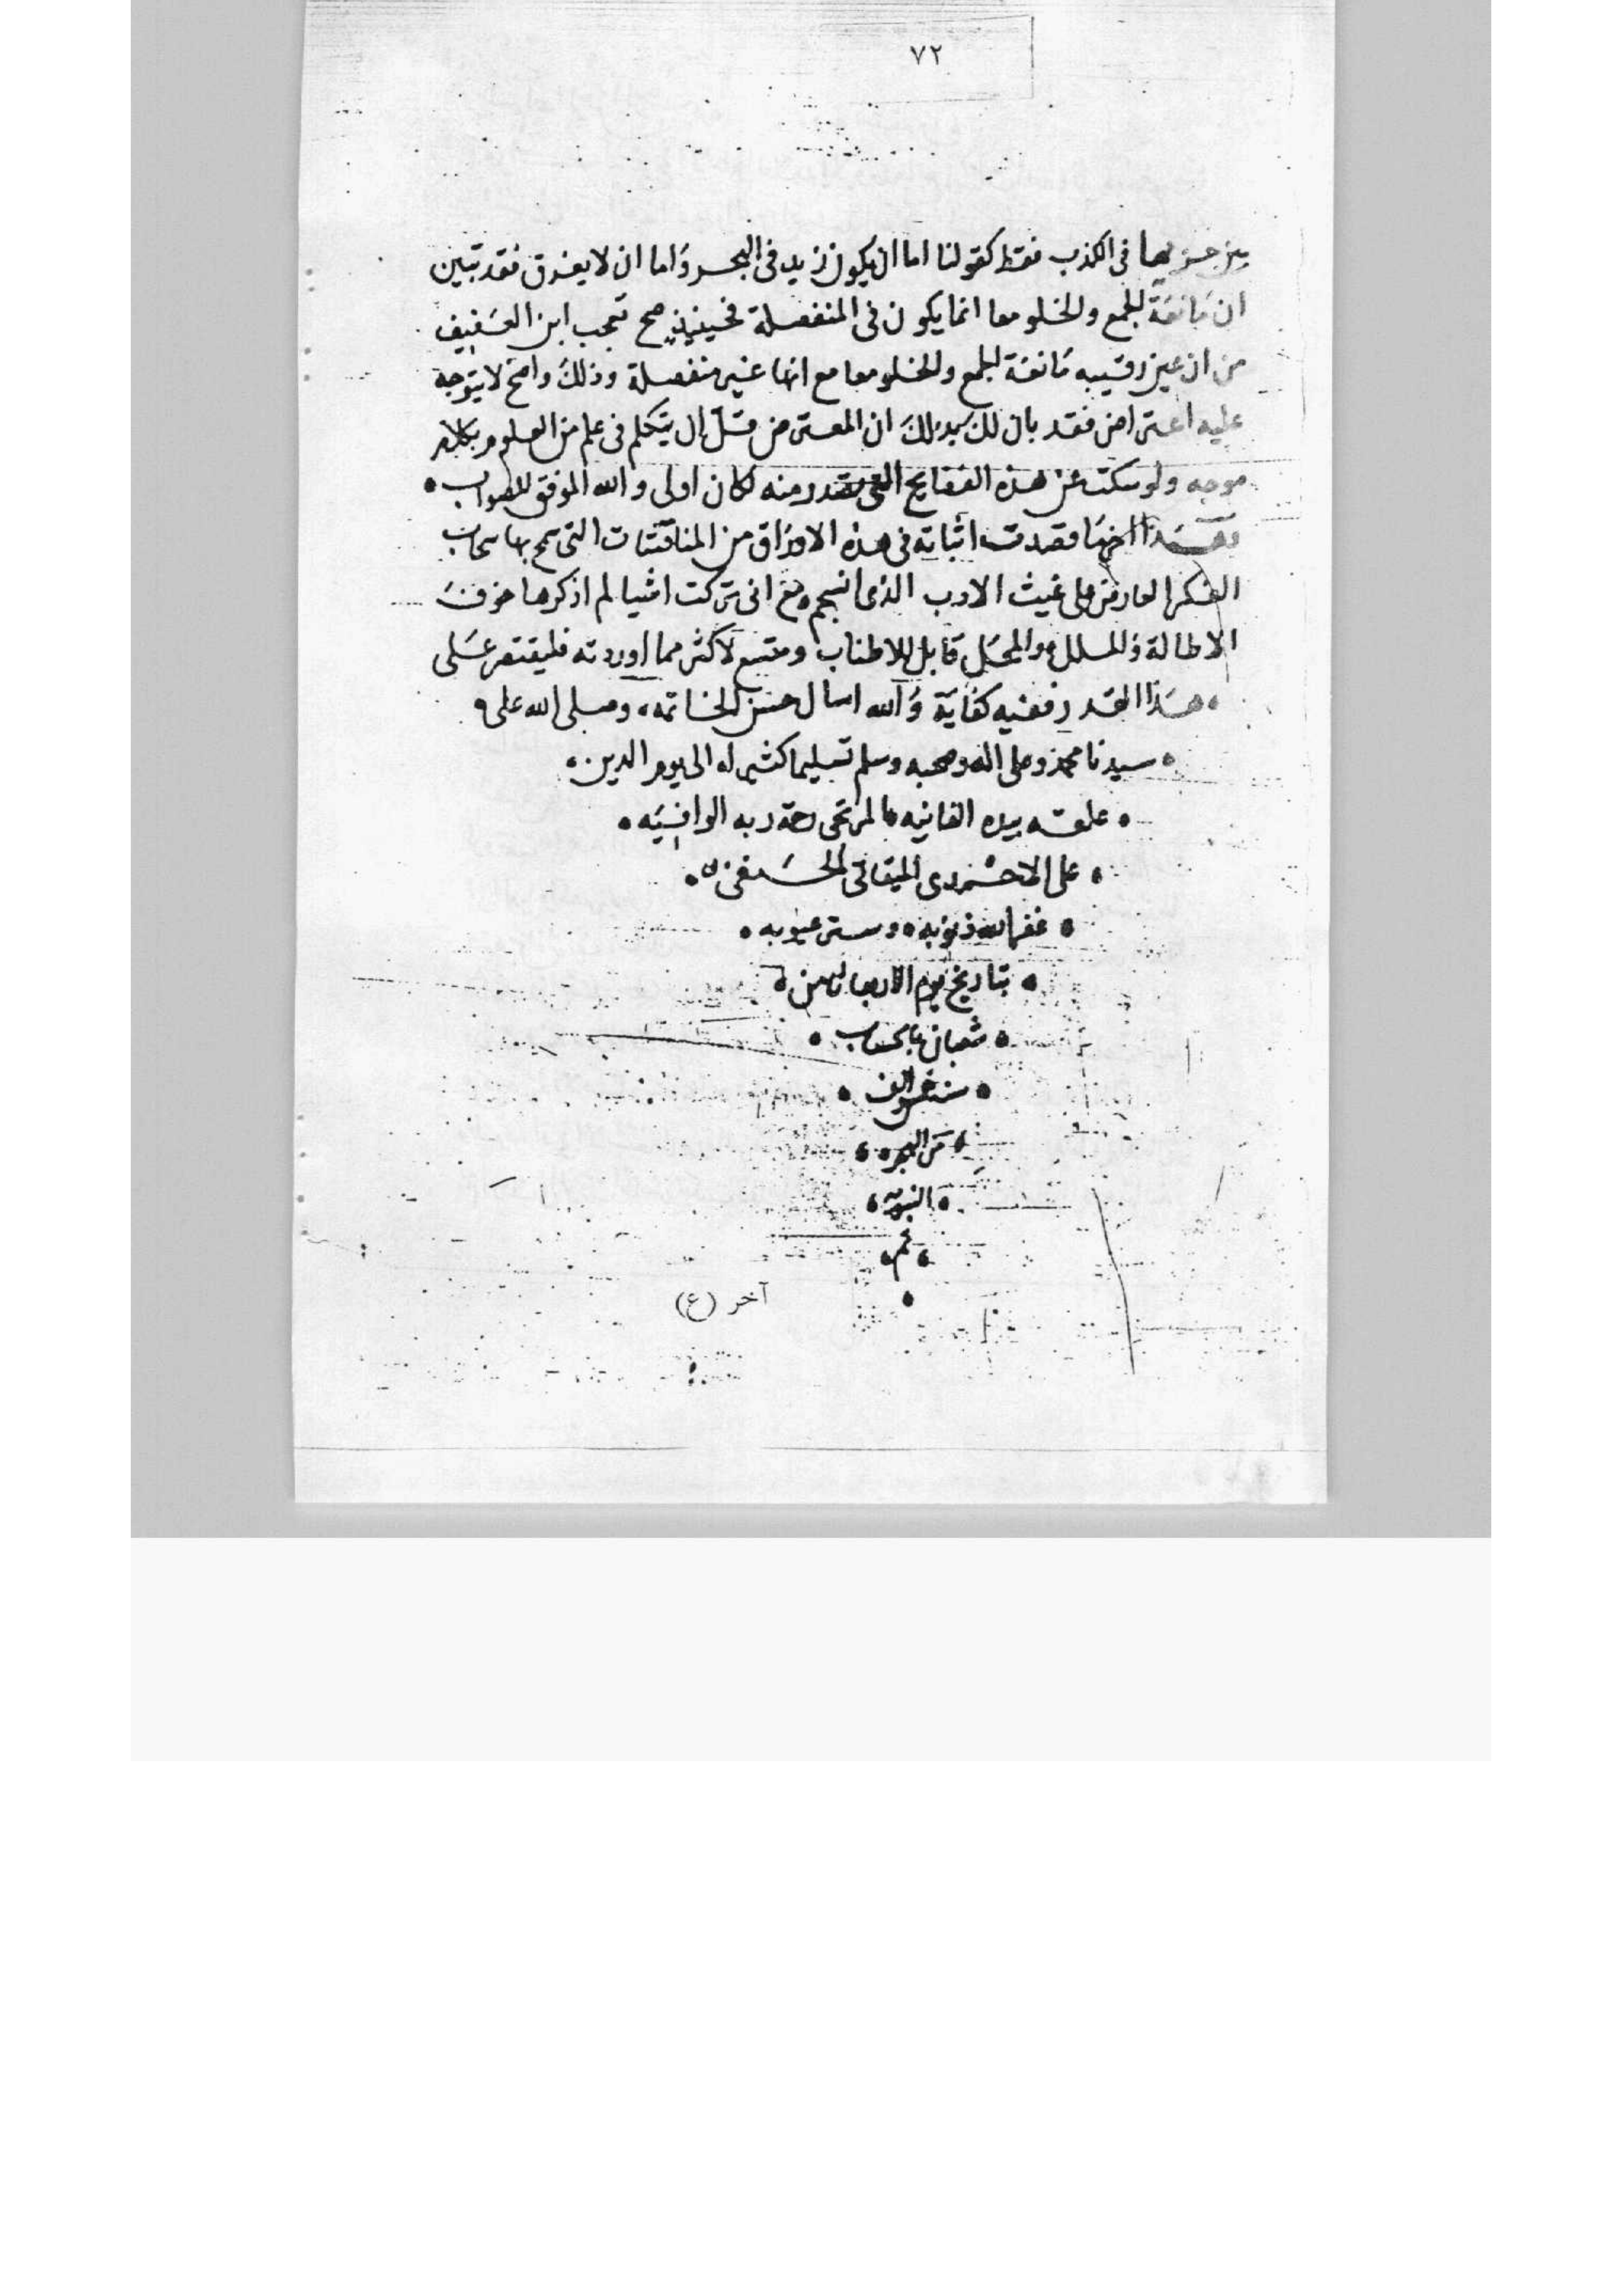 ٧٢
بين جزيها في الكذب فقط كقولنا اما ان يكون زيد في البحر واما ان لا يغرق فقد تبين
ان مانعة للجمع والخلو معا انما يكون في المنفصلة فحينيذ صح تعجب ابن العفيف
من ان عين رقيبه مانعة للجمع والخلو معا مع انها غير منفصلة وذلك واضح لا يتوجه
عليه اعتراض فقد بان لك بذلك ان المعترض قل ان يتكلم في علم من العلوم بكلام
موجه ولو سكت عن هذه الفضايح التي تصدر منه لكان اولى والله الموفق للصواب
هذا اخر ما قصدت اثباته في هذه الاوراق من المناقشات التي سمح بها سحاب
الفكر العارض على غيث الادب الذي انسجم مع اني تركت اشيا لم اذكرها خوف
الاطالة والملل والمحل قابل للاطناب ومتسع لاكثر مما اوردته فليقتصر على
هذا القدر ففيه كفاية والله اسال حسن الخاتمه وصلى الله على
سيدنا محمد وعلى اله وصحبه وسلم تسليما كثيرا الى يوم الدين
علقه بيده الفانيه المرتجى رحمة ربه الوافيه
على الميقاتي الحنفى
غفر الله ذنوبه وستر عيوبه
بتاريخ يوم الاربعا ثامن
شعبان
سنة الف
من الهجره
النبويه
تم
آخر (ع)